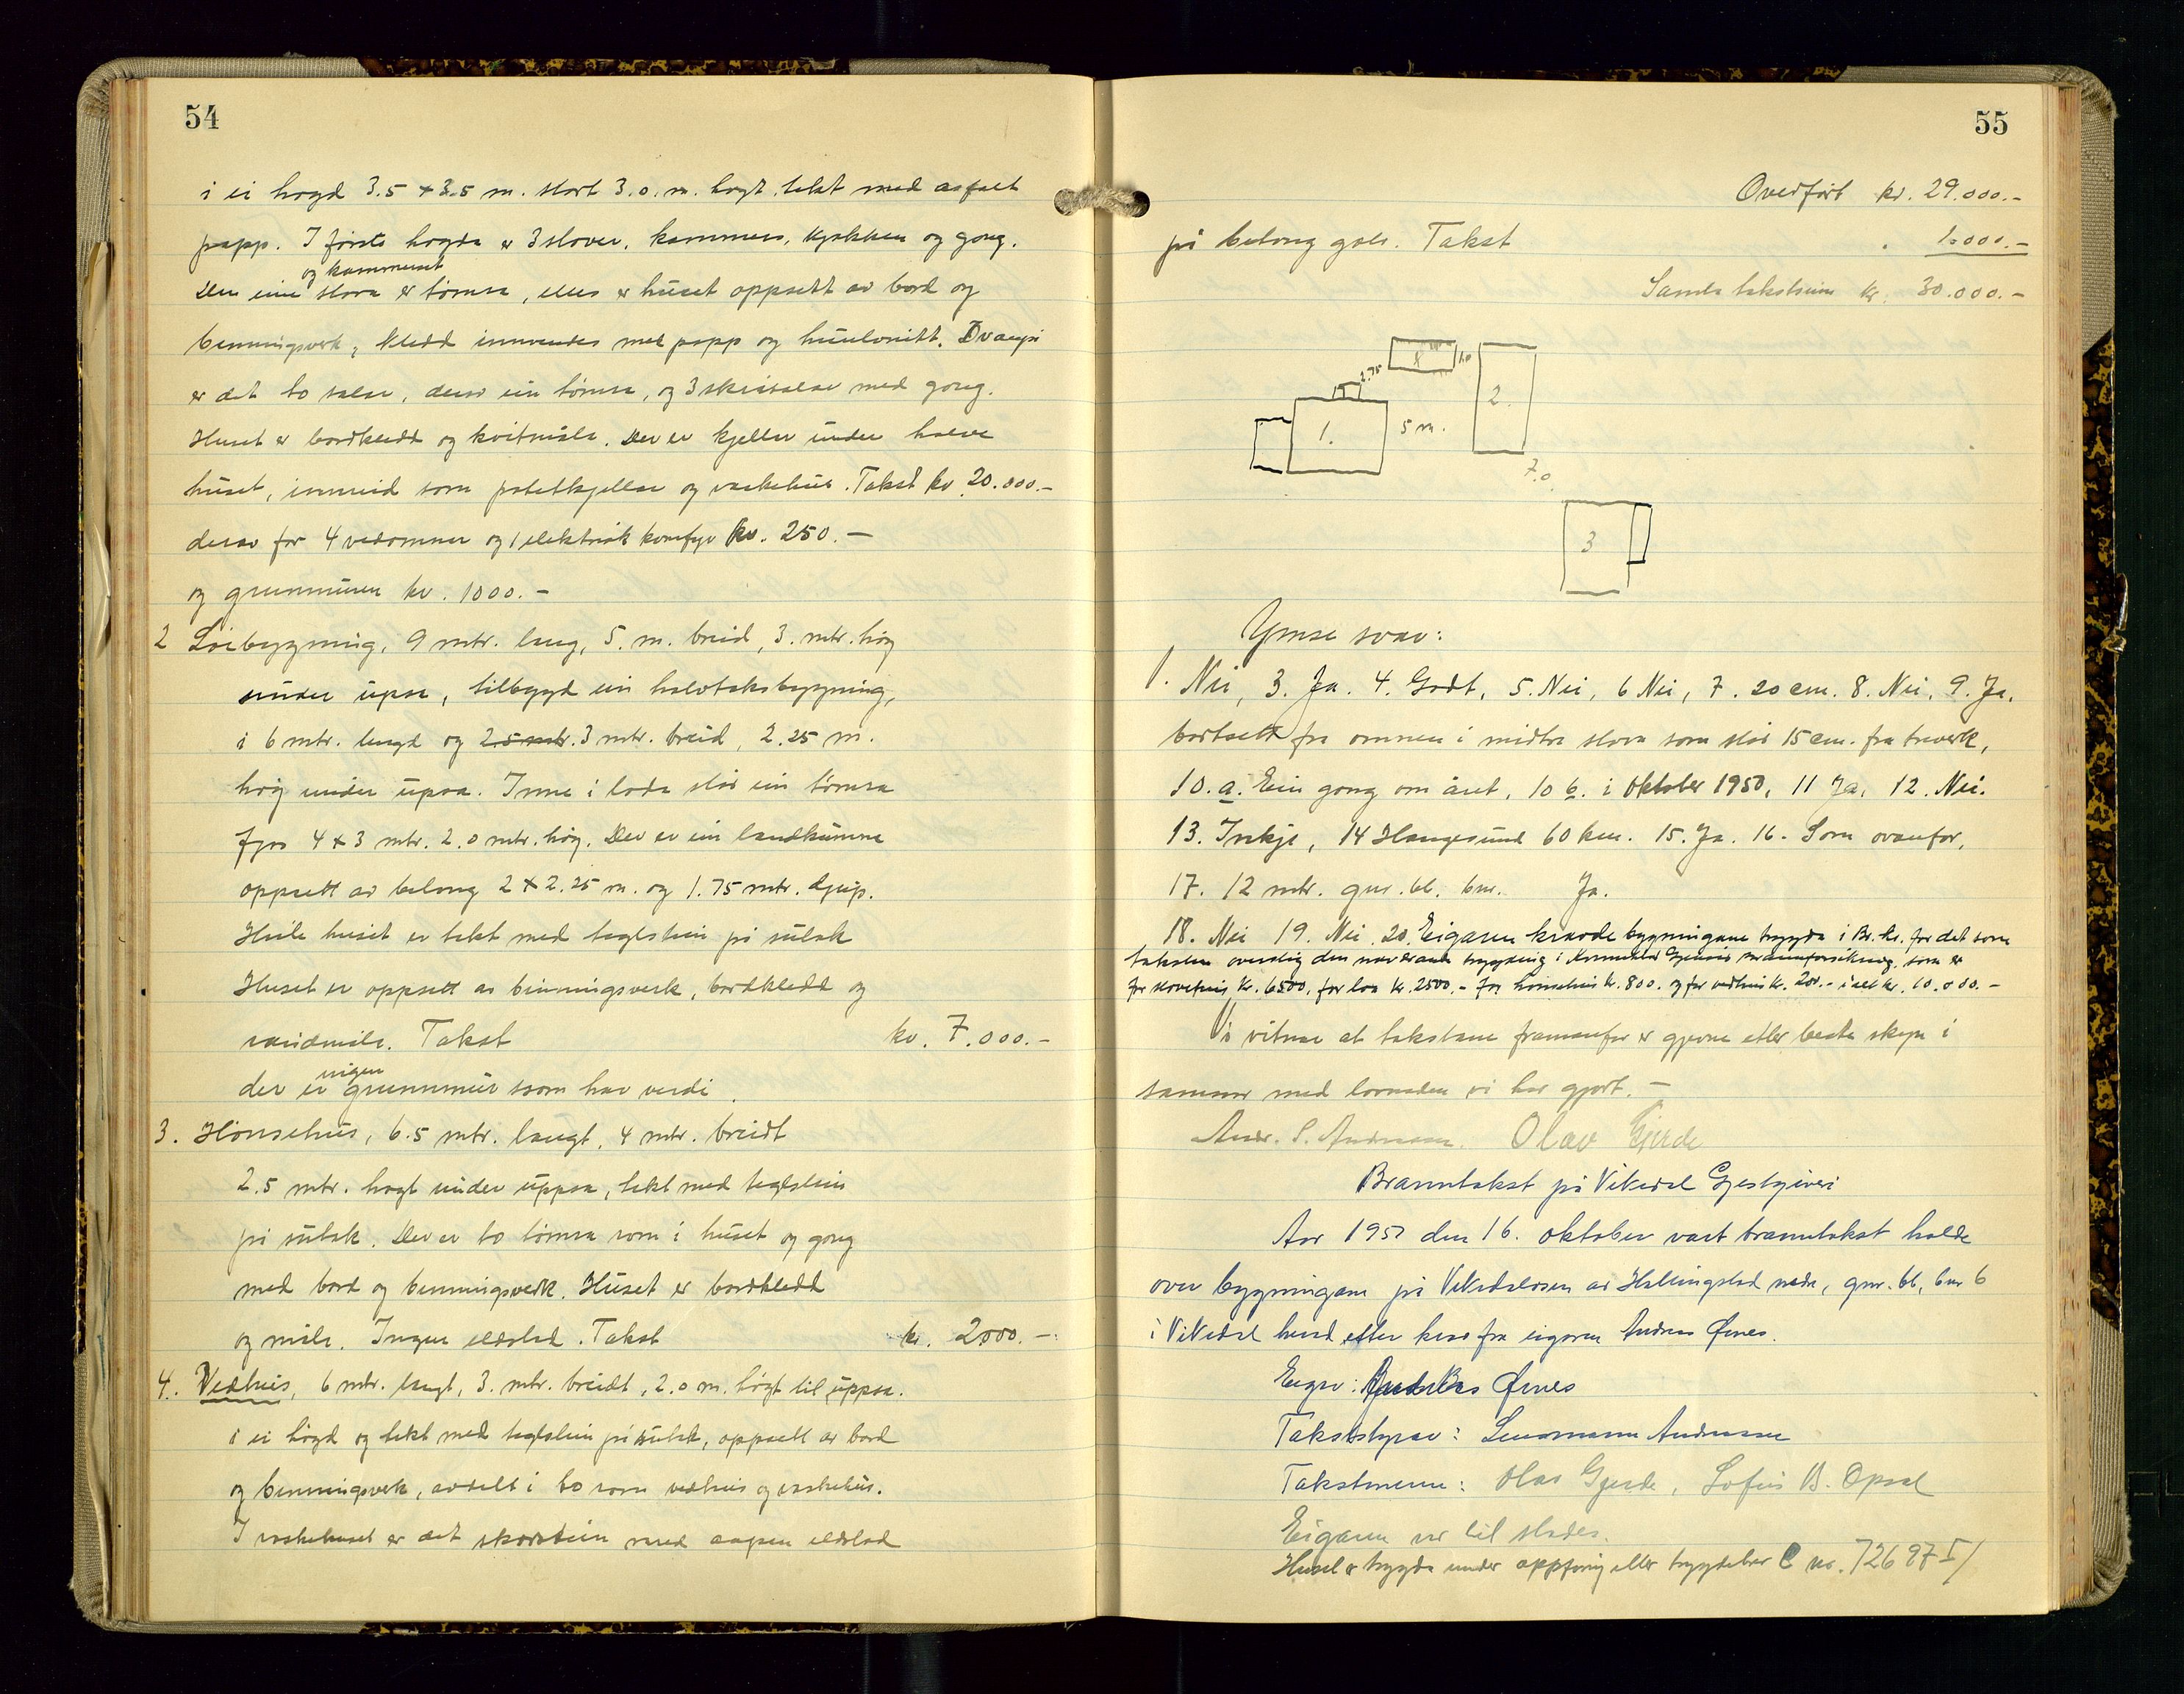 54
i ei høgd 3.5 x 3.5 m. stort 3.0. m. høgt. tekt med asfalt
papp. I første høgda er 3 stover, kammers, kjøkken og gong.
og kammerset
Den eine stova er tømra, elles er huset oppsett av bord og
benningsverk, kledd innvendes med papp og huntonitt. Ovanpå
er det to salar, derav ein tømra, og 3 skråsalar med gong.
Huset er bordkledd og kvitmåla. Der er kjellar under halve
huset, innreid som potetkjellar og vaskehus. Takst kr. 20.000.-
derav for 4 vedomnar og 1 elektrisk komfyr kr. 250.-
og grunnmuren kr. 1000.-
2 Løebygning, 9 mtr. lang, 5. m. breid, 3. mtr. høg
under upsa, tilbygd ein halvtaksbygning,
i 6 mtr. lengd og 2.5 mtr. 3 mtr. breid, 2.25 m.
høg under upsa. Inne i løda står ein tømra
fjos 4 x 3 mtr. 2.0 mtr. høg. Der er ein landkumme
oppsett av betong 2 x 2.25 m. og 1.75 mtr. djup.
Heile huset er tekt med teglstein på sutak
Huset er oppsett av binningsverk, bordkledd og
raudmåla. Takst kr. 7.000.-
ingen
der er grunnmur som har verdi.
3. Hønsehus, 6.5 mtr. langt, 4 mtr. breidt
2.5 mtr. høgt under uppsa, tekt med teglstein
på sutak. Der er to tømra rom i huset og gong
med bord og benningsverk. Huset er bordkledd
og måla. Ingen eldstad. Takst kr. 2000.-
4. Vedhus, 6 mtr. langt, 3. mtr. breidt, 2.0 m. høgt til uppsa.
i ei høgd og tekt med teglstein på sutak, oppsett av bord
og benningsverk, avdelt i to rom vedhus og vaskehus.
I vaskehuset er det skorstein med aapen eldstad
55
Overført kr. 29.000.-
på betong golv. Takst " 1.000.-
Samla takstsum kr. 30.000.-
2.75
4.0
1.
5 m.
2.
7.0
3
Ymse svar:
1. Nei, 3. Ja. 4. Godt, 5. Nei, 6 Nei, 7. 20 cm. 8. Nei, 9. Ja.
bortsett fra omnen i midtre stova som står 15 cm. fra treverk,
10. a. Ein gong om året, 10 b. i oktober 1950, 11 Ja, 12. Nei.
13. Inkje, 14 Haugesund 60 km. 15. Ja. 16. Som ovanfor,
17. 12 mtr. gnr. 66. bnr. Ja.
18. Nei 19. Nei. 20. Eigaren kravde bygningane trygda i Br.kr. for det som
taksten overstig den noverande trygding i brannforsikring. som er
for stovehus kr. 6500, for løa kr. 2500.- for hønsehus kr. 800. og for vedhus kr. 200.- i alt kr. 10.000.-
Vi vitnar at takstane framanfor er gjevne etter beste skyn i
samsvar med lovnaden vi har gjort.-
Andr. S. Andreassen. Olav Gjerde
Branntakst på Vikedal Gjestgiveri
Aar 1951 den 16. oktober vart branntakst halde
over bygningane på Vikedalsosen av Hallingstad nedre, gnr. 66, bnr 6
i Vikedal herad etter krav fra eigaren Andreas Ørnes.
Eigar: Andreas Ørnes
Takststyrar: Lensmann Andreassen
Takstmenn: Olav Gjerde, Sofus B. Opsal
Eigaren var til stades.
Huset er trygda under oppføring etter trygdebrev C nr. 72697 I/